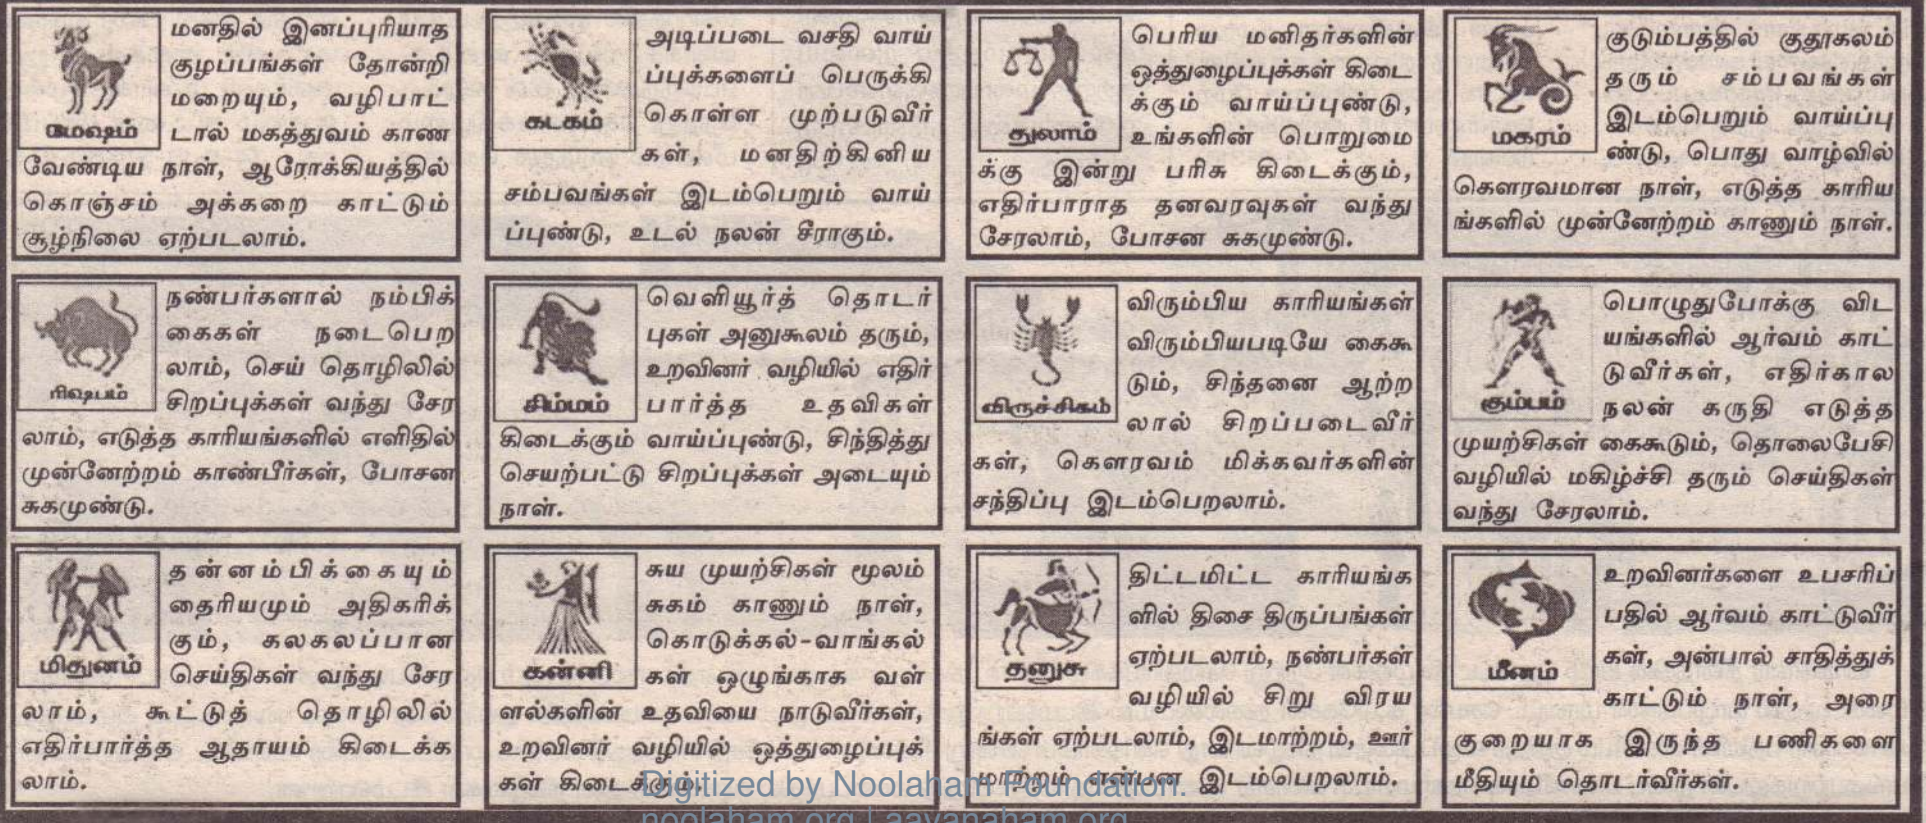 மேஷம்
மனதில் இனப்புரியாத
குழப்பங்கள் தோன்றி
மறையும், வழிபாட்
டால் மகத்துவம் காண
வேண்டிய நாள், ஆரோக்கியத்தில்
கொஞ்சம் அக்கறை காட்டும்
சூழ்நிலை ஏற்படலாம்.
ரிஷபம்
நண்பர்களால் நம்பிக்
கைகள் நடைபெற
லாம், செய் தொழிலில்
சிறப்புக்கள் வந்து சேர
லாம், எடுத்த காரியங்களில் எளிதில்
முன்னேற்றம் காண்பீர்கள், போசன
சுகமுண்டு.
மிதுனம்
தன்னம்பிக்கையும்
தைரியமும் அதிகரிக்
கும், கலகலப்பான
செய்திகள் வந்து சேர
லாம், கூட்டுத் தொழிலில்
எதிர்பார்த்த ஆதாயம் கிடைக்க
லாம்.
கடகம்
அடிப்படை வசதி வாய்
ப்புக்களைப் பெருக்கி
கொள்ள முற்படுவீர்
கள், மனதிற்கினிய
சம்பவங்கள் இடம்பெறும் வாய்
ப்புண்டு, உடல் நலன் சீராகும்.
சிம்மம்
வெளியூர்த் தொடர்
புகள் அனுகூலம் தரும்,
உறவினர் வழியில் எதிர்
பார்த்த உதவிகள்
கிடைக்கும் வாய்ப்புண்டு, சிந்தித்து
செயற்பட்டு சிறப்புக்கள் அடையும்
நாள்.
கன்னி
சுய முயற்சிகள் மூலம்
சுகம் காணும் நாள்,
கொடுக்கல்-வாங்கல்
கள் ஒழுங்காக வள்
ளல்களின் உதவியை நாடுவீர்கள்,
உறவினர் வழியில் ஒத்துழைப்புக்
கள் கிடைக்கும்.
துலாம்
பெரிய மனிதர்களின்
ஒத்துழைப்புக்கள் கிடை
க்கும் வாய்ப்புண்டு,
உங்களின் பொறுமை
க்கு இன்று பரிசு கிடைக்கும்,
எதிர்பாராத தனவரவுகள் வந்து
சேரலாம், போசன சுகமுண்டு.
விருச்சிகம்
விரும்பிய காரியங்கள்
விரும்பியபடியே கைகூ
டும், சிந்தனை ஆற்ற
லால் சிறப்படைவீர்
கள், கௌரவம் மிக்கவர்களின்
சந்திப்பு இடம்பெறலாம்.
தனுசு
திட்டமிட்ட காரியங்க
ளில் திசை திருப்பங்கள்
ஏற்படலாம், நண்பர்கள்
வழியில் சிறு விரய
ங்கள் ஏற்படலாம், இடமாற்றம், ஊர்
மாற்றம் என்பன இடம்பெறலாம்.
மகரம்
குடும்பத்தில் குதூகலம்
தரும் சம்பவங்கள்
இடம்பெறும் வாய்ப்பு
ண்டு, பொது வாழ்வில்
கௌரவமான நாள், எடுத்த காரிய
ங்களில் முன்னேற்றம் காணும் நாள்.
கும்பம்
பொழுதுபோக்கு விட
யங்களில் ஆர்வம் காட்
டுவீர்கள், எதிர்கால
நலன் கருதி எடுத்த
முயற்சிகள் கைகூடும், தொலைபேசி
வழியில் மகிழ்ச்சி தரும் செய்திகள்
வந்து சேரலாம்.
மீனம்
உறவினர்களை உபசரிப்
பதில் ஆர்வம் காட்டுவீர்
கள், அன்பால் சாதித்துக்
காட்டும் நாள், அரை
குறையாக இருந்த பணிகளை
மீதியும் தொடர்வீர்கள்.
Digitized by Noolaham Foundation.
noolaham.org | aavanaham.org